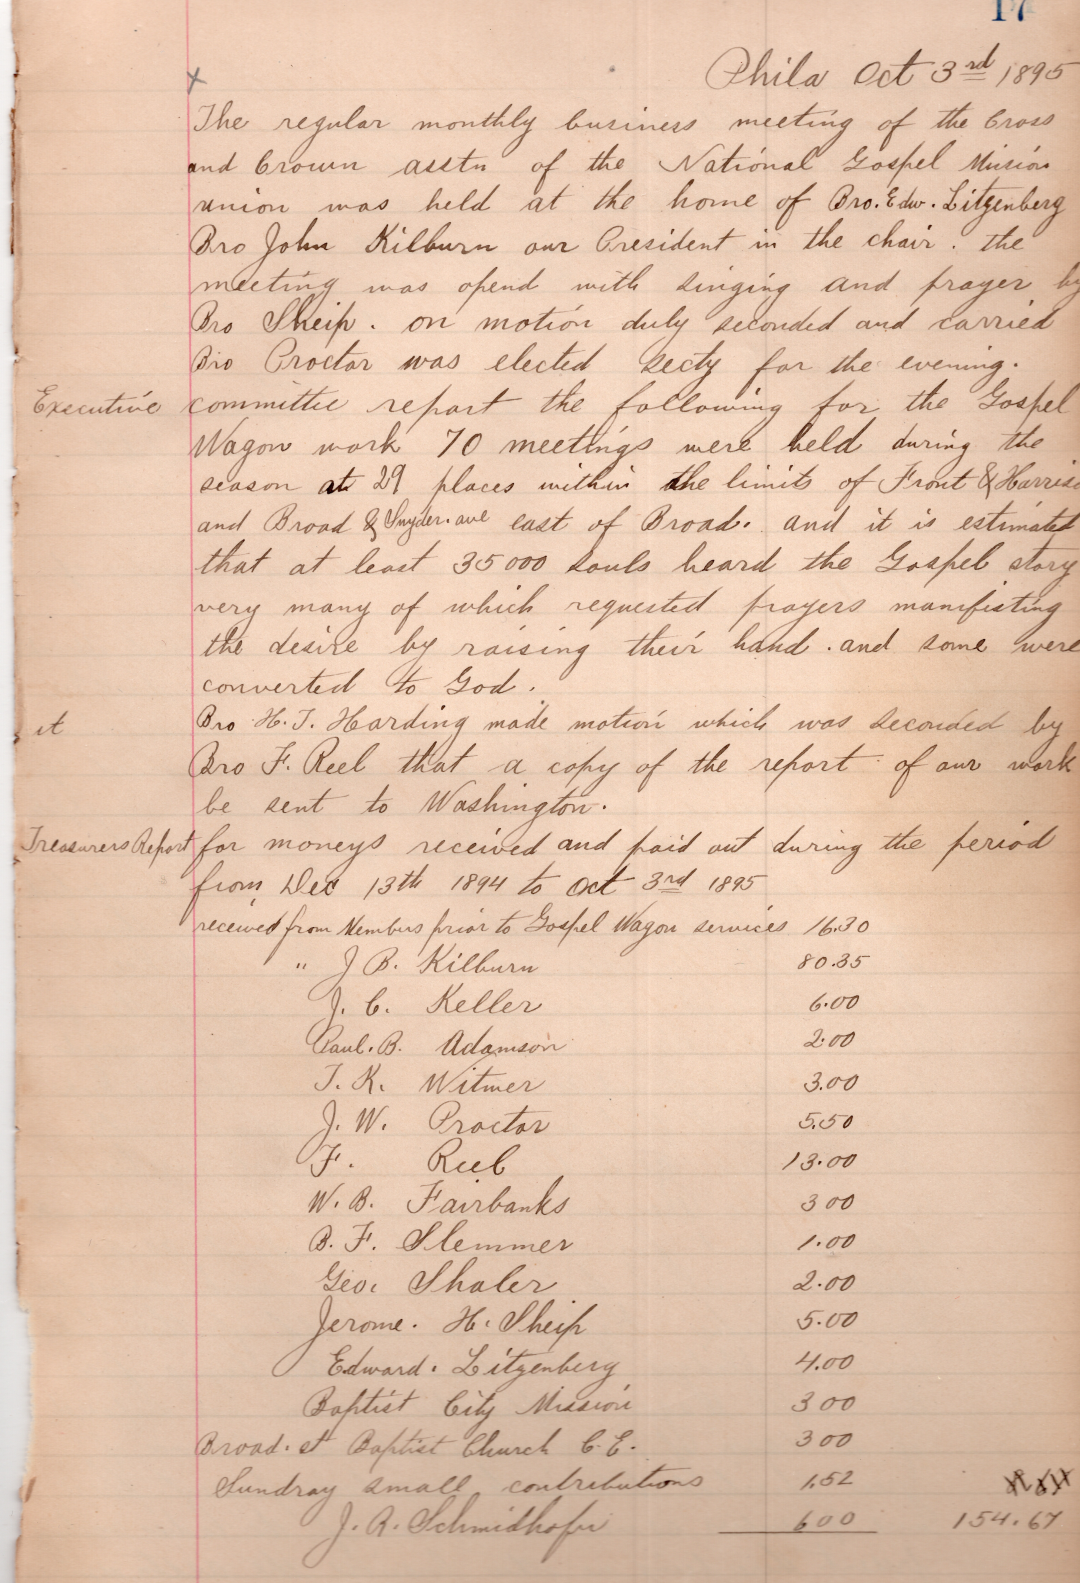 17
Phila Oct 3rd 1895
x
The regular monthly business meeting of the Cross
and Crown asstn of the National Gospel Mission
union was held at the home of Bro. Edw. Litzenberg
Bro John Kilburn our President in the chair. the
meeting was opend with singing and prayer by
Bro Sheip. on motion duly seconded and carried
Bro Proctor was elected Secty for the evening.
Executive committie report the following for the Gospel
Wagon work 70 meetings were held during the
season at 29 places within the limits of Front & Harriso
and Broad & Snyder. ave east of Broad. and it is estimated
that at least 35000 souls heard the Gospel story
very many of which requested prayers manifisting
the desire by raising their hand. and some were
converted to God.
it Bro H. T. Harding made motion which was seconded by
Bro F. Reel that a copy of the report of our work
be sent to Washington.
Treasurers Report for moneys received and paid out during the period
from Dec 13th 1894 to Oct 3rd 1895
received from Members prior to Gospel Wagon services 16.30
" J B. Kilburn 80.35
J. C. Keller 6.00
Paul. B. Adamson 2.00
T. K. Witmer 3.00
J. W. Proctor 5.50
F. Reel 13.00
W. B. Fairbanks 3 00
B. F. Slemmer 1.00
Geo. Shaler 2.00
Jerome. H. Sheip 5.00
Edward. Litzenberg 4.00
Baptist City Mission 3 00
Broad. st Baptist Church C. E. 3 00
Sundray small contributions 1.52
J. A. Schmidhofer 6 00 154.67